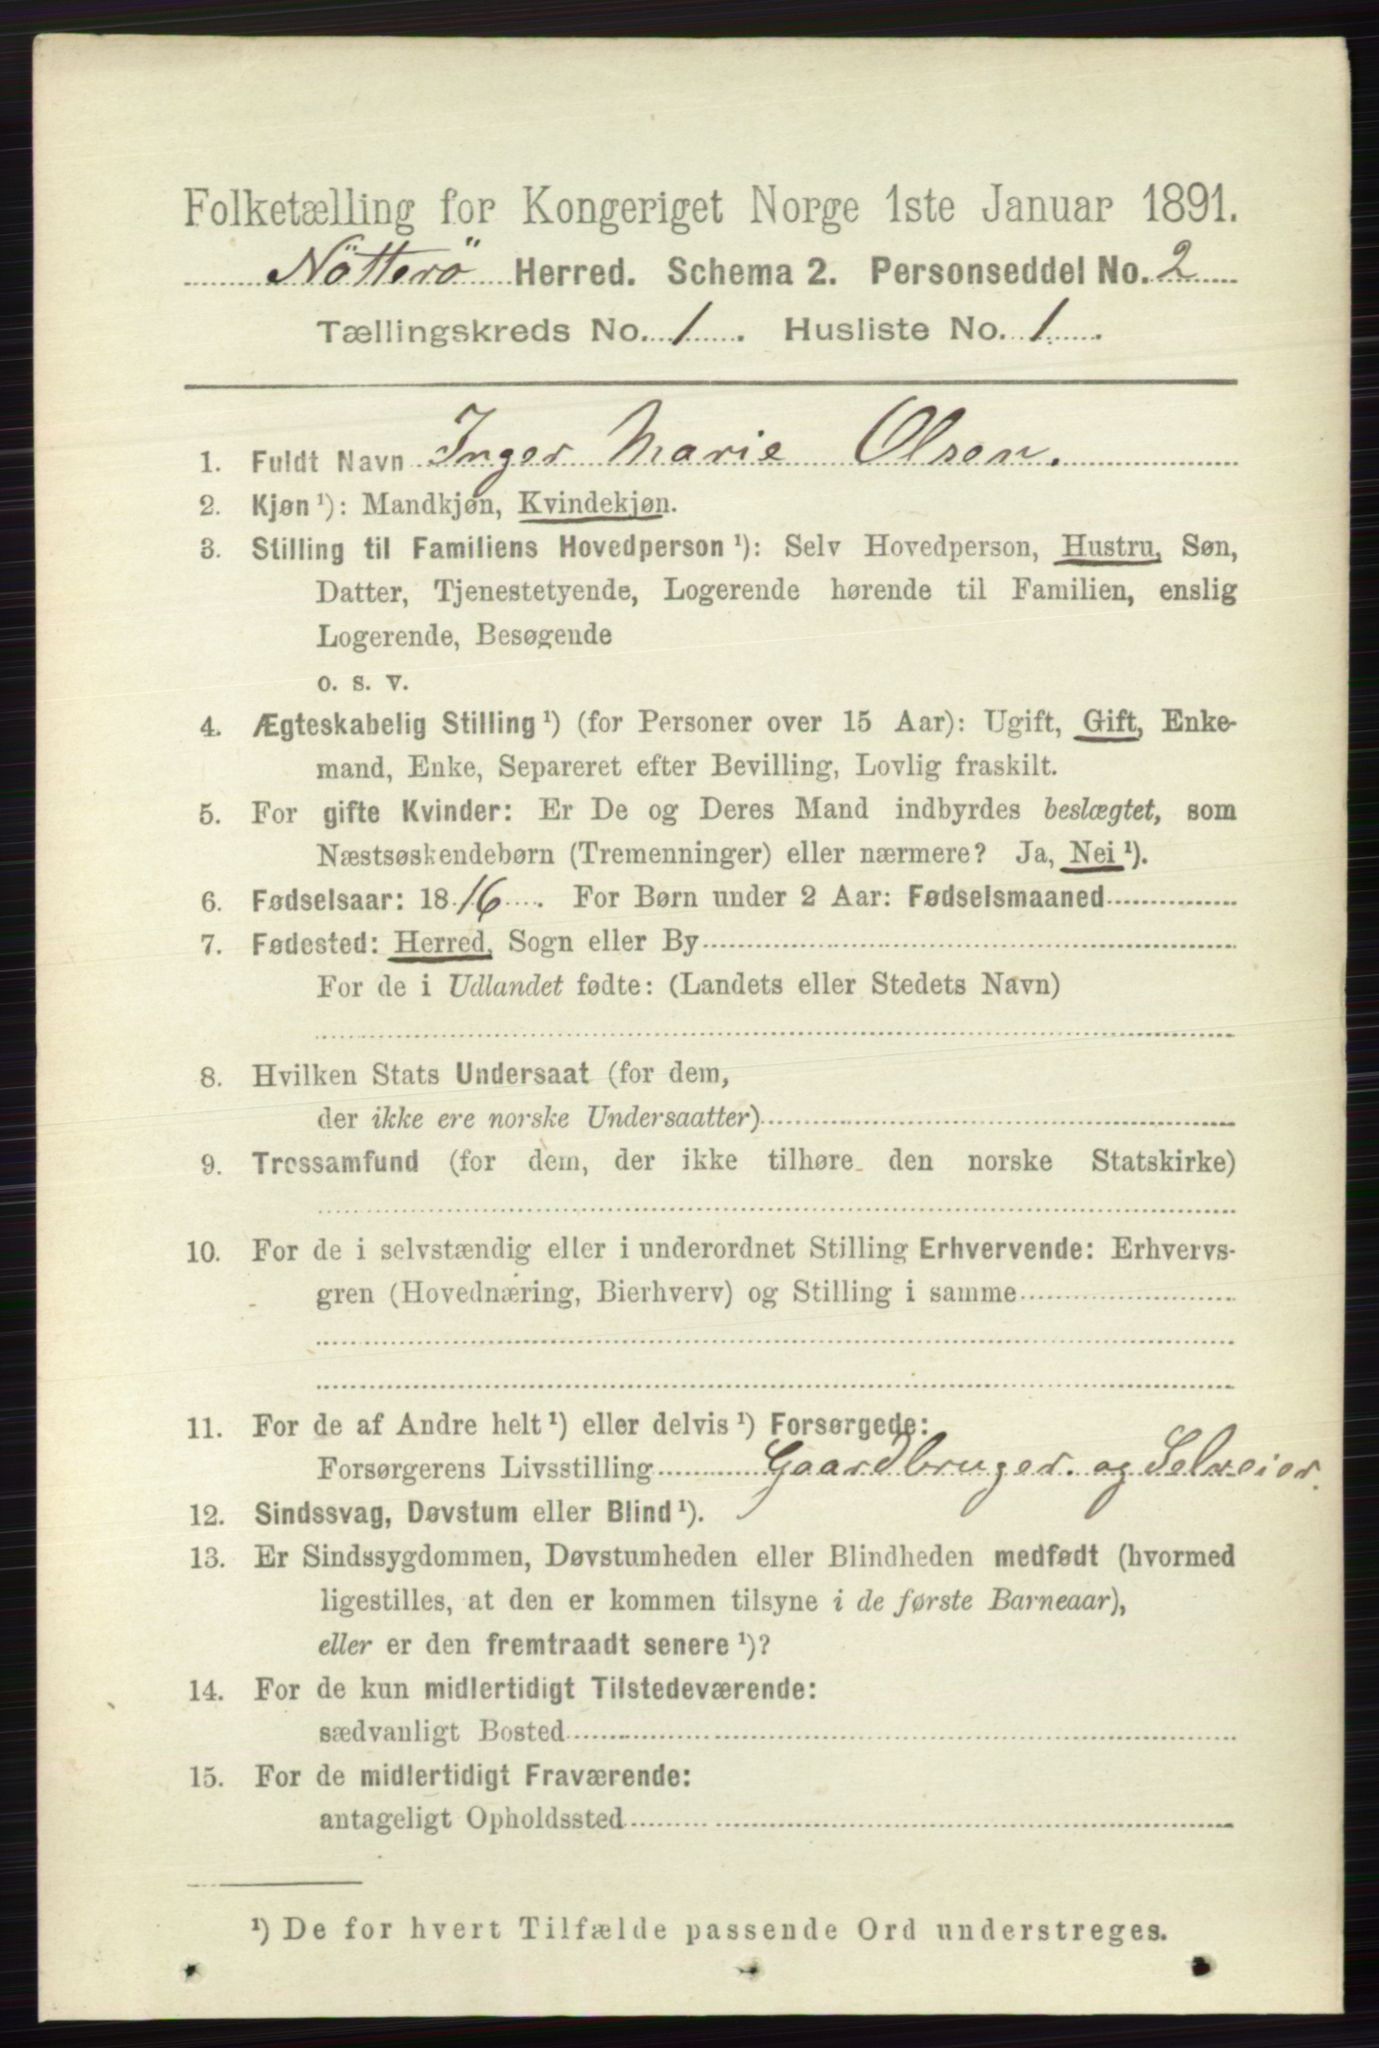 Folketælling for Kongeriget Norge 1ste Januar 1891.
Nötterö Herred. Schema 2. Personseddel No. 2
Tællingskreds No. 1. Husliste No. 1.
1. Fuldt Navn Inger Marie Olsen.
2. Kjøn ¹): Mandkjøn, Kvindekjøn.
3. Stilling til Familiens Hovedperson ¹): Selv Hovedperson, Hustru, Søn,
Datter, Tjenestetyende, Logerende hørende til Familien, enslig
Logerende, Besøgende
o. s. v.
4. Ægteskabelig Stilling ¹) (for Personer over 15 Aar): Ugift, Gift, Enke-
mand, Enke, Separeret efter Bevilling, Lovlig fraskilt.
5. For gifte Kvinder: Er De og Deres Mand indbyrdes beslægtet, som
Næstsøskendebørn (Tremenninger) eller nærmere? Ja, Nei ¹).
6. Fødselsaar: 1816. For Børn under 2 Aar: Fødselsmaaned
7. Fødested: Herred, Sogn eller By
For de i Udlandet fødte: (Landets eller Stedets Navn)
8. Hvilken Stats Undersaat (for dem,
der ikke ere norske Undersaatter)
9. Trossamfund (for dem, der ikke tilhøre den norske Statskirke)
10. For de i selvstændig eller i underordnet Stilling Erhvervende: Erhvervs-
gren (Hovednæring, Bierhverv) og Stilling i samme
11. For de af Andre helt ¹) eller delvis ¹) Forsørgede:
Forsørgerens Livsstilling Gaardbruger og Selveier.
12. Sindssvag, Døvstum eller Blind ¹).
13. Er Sindssygdommen, Døvstumheden eller Blindheden medfødt (hvormed
ligestilles, at den er kommen tilsyne i de første Barneaar),
eller er den fremtraadt senere ¹)?
14. For de kun midlertidigt Tilstedeværende:
sædvanligt Bosted
15. For de midlertidigt Fraværende:
antageligt Opholdssted
¹) De for hvert Tilfælde passende Ord understreges.